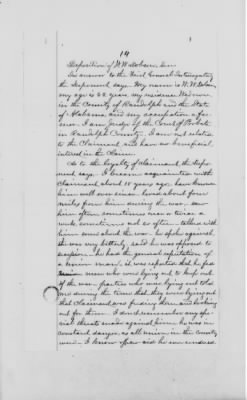 14
Deposition of W W Dobson, Sen
In answer to the First General Interrogatory
the Deponent says. My name is W. W. Dobson,
my age is 52 years, my residence Wedowee
in the County of Randolph and the State
of Alabama, and my occupation a far-
mer. I am Judge of the Court of Probate
in Randolph County. I am not related
to the Claimant and have no beneficial
interest in the Claim.
As to the loyalty of claimant the Depo-
nent says. I became acquainted with
Claimant about 18 years ago, have known
him well ever since. lived about four
miles from him during the war. saw
him often sometimes once or twice a
week sometimes not so often. talked with
him some about the war. he spoke against
the war very bitterly. said he was opposed to
secession. he had the general reputation of
a union man. it was reported that he fed
men who were lying out to keep out
of the war. parties who were lying out told
me during the time that they were lying out
that Claimant was feeding them and looking
out for them. I dont remember any spe-
cial threats made against him. he was in
constant danger as all union in the county
were. I know of no aid he ever rendered